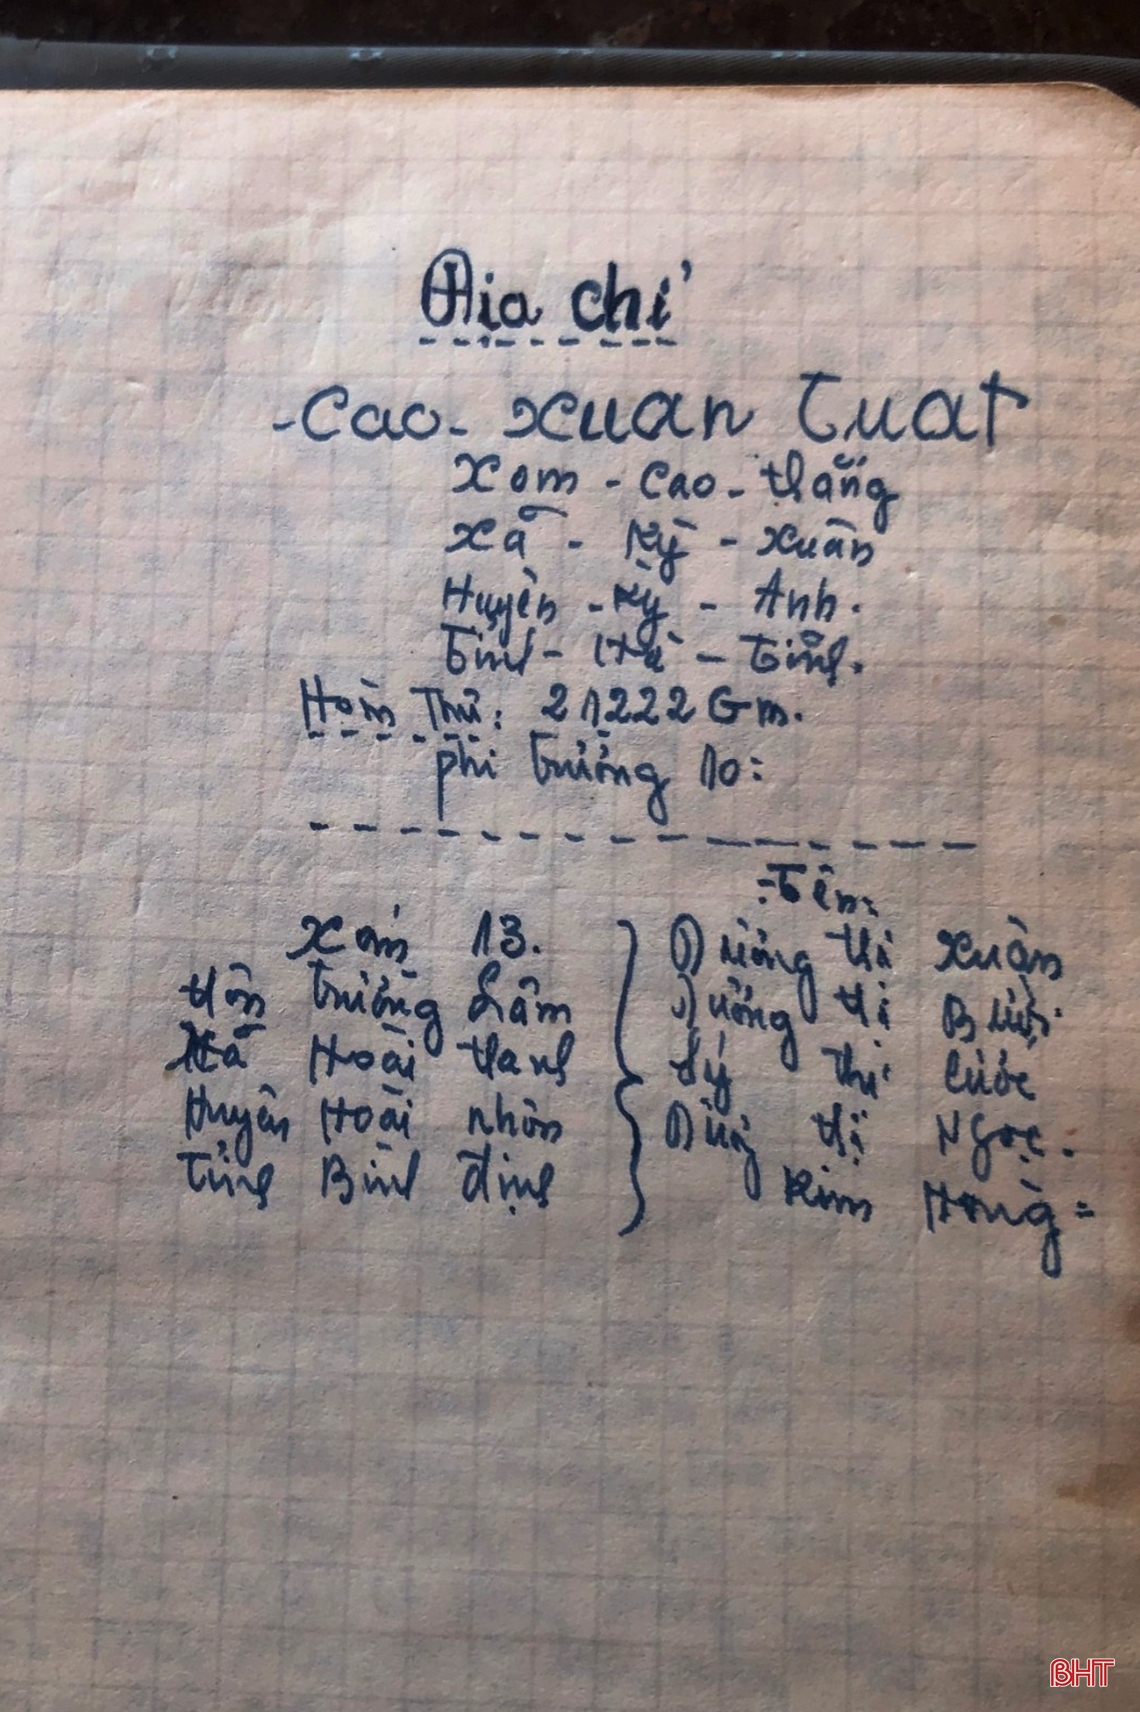 Địa chỉ
- Cao - Xuan Tuat
Xom - Cao - thắng
Xã - Kỳ - Xuân
Huyện - Kỳ - Anh.
Tỉnh - Hà - Tỉnh.
Hòm Thư: 21222 Gm.
phi trường 10:
: Tên:
Xóm 13.
thôn Trường Lâm
Xã Hoài thanh
Huyện Hoài nhơn
Tỉnh Bình định
Dương thị Xuân
Dương thị
Lý thị Cước
thị Ngọc.
Kim Hoàng =
BHT